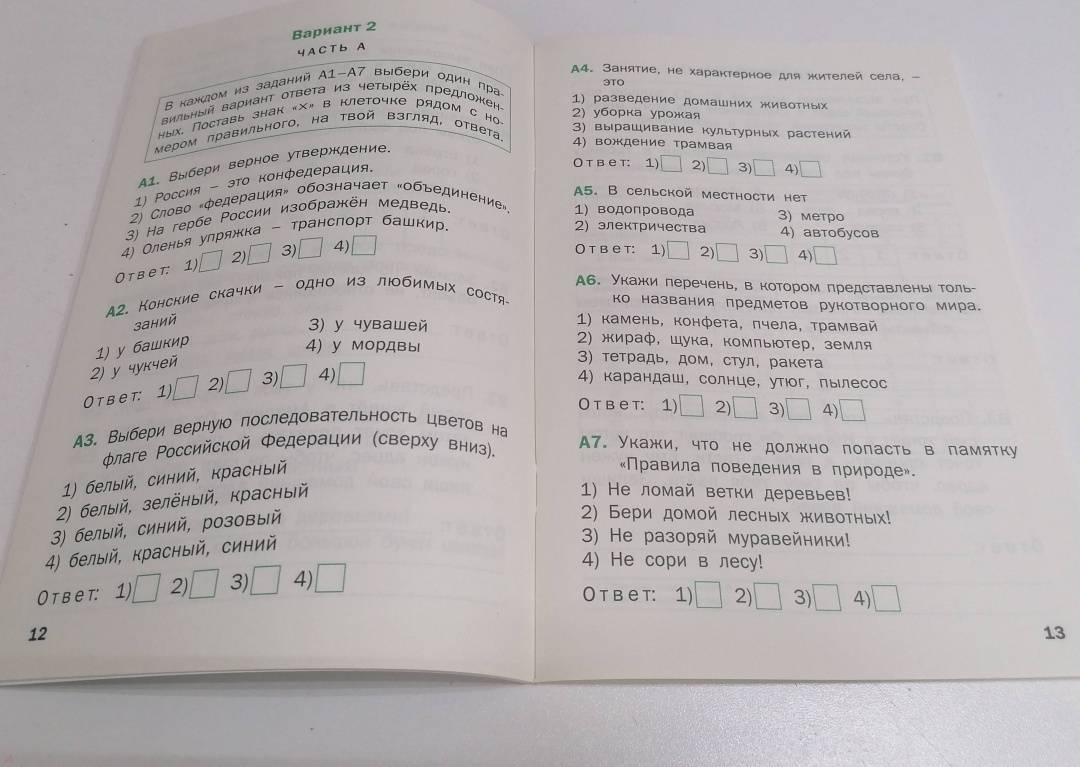 Вариант 2
ЧАСТЬ А
В каждом из заданий А1–А7 выбери один пра-
вильный вариант ответа из четырёх предложен-
ных. Поставь знак «×» в клеточке рядом с но-
мером правильного, на твой взгляд, ответа.
А1. Выбери верное утверждение.
1) Россия – это конфедерация.
2) Слово «федерация» обозначает «объединение».
3) На гербе России изображён медведь.
4) Оленья упряжка – транспорт башкир.
Ответ: 1) 2) 3) 4)
А2. Конские скачки – одно из любимых состя-
заний
1) у башкир 3) у чувашей
2) у чукчей 4) у мордвы
Ответ: 1) 2) 3) 4)
А3. Выбери верную последовательность цветов на
флаге Российской Федерации (сверху вниз).
1) белый, синий, красный
2) белый, зелёный, красный
3) белый, синий, розовый
4) белый, красный, синий
Ответ: 1) 2) 3) 4)
12
А4. Занятие, не характерное для жителей села, –
это
1) разведение домашних животных
2) уборка урожая
3) выращивание культурных растений
4) вождение трамвая
Ответ: 1) 2) 3) 4)
А5. В сельской местности нет
1) водопровода 3) метро
2) электричества 4) автобусов
Ответ: 1) 2) 3) 4)
А6. Укажи перечень, в котором представлены толь-
ко названия предметов рукотворного мира.
1) камень, конфета, пчела, трамвай
2) жираф, щука, компьютер, земля
3) тетрадь, дом, стул, ракета
4) карандаш, солнце, утюг, пылесос
Ответ: 1) 2) 3) 4)
А7. Укажи, что не должно попасть в памятку
«Правила поведения в природе».
1) Не ломай ветки деревьев!
2) Бери домой лесных животных!
3) Не разоряй муравейники!
4) Не сори в лесу!
Ответ: 1) 2) 3) 4)
13